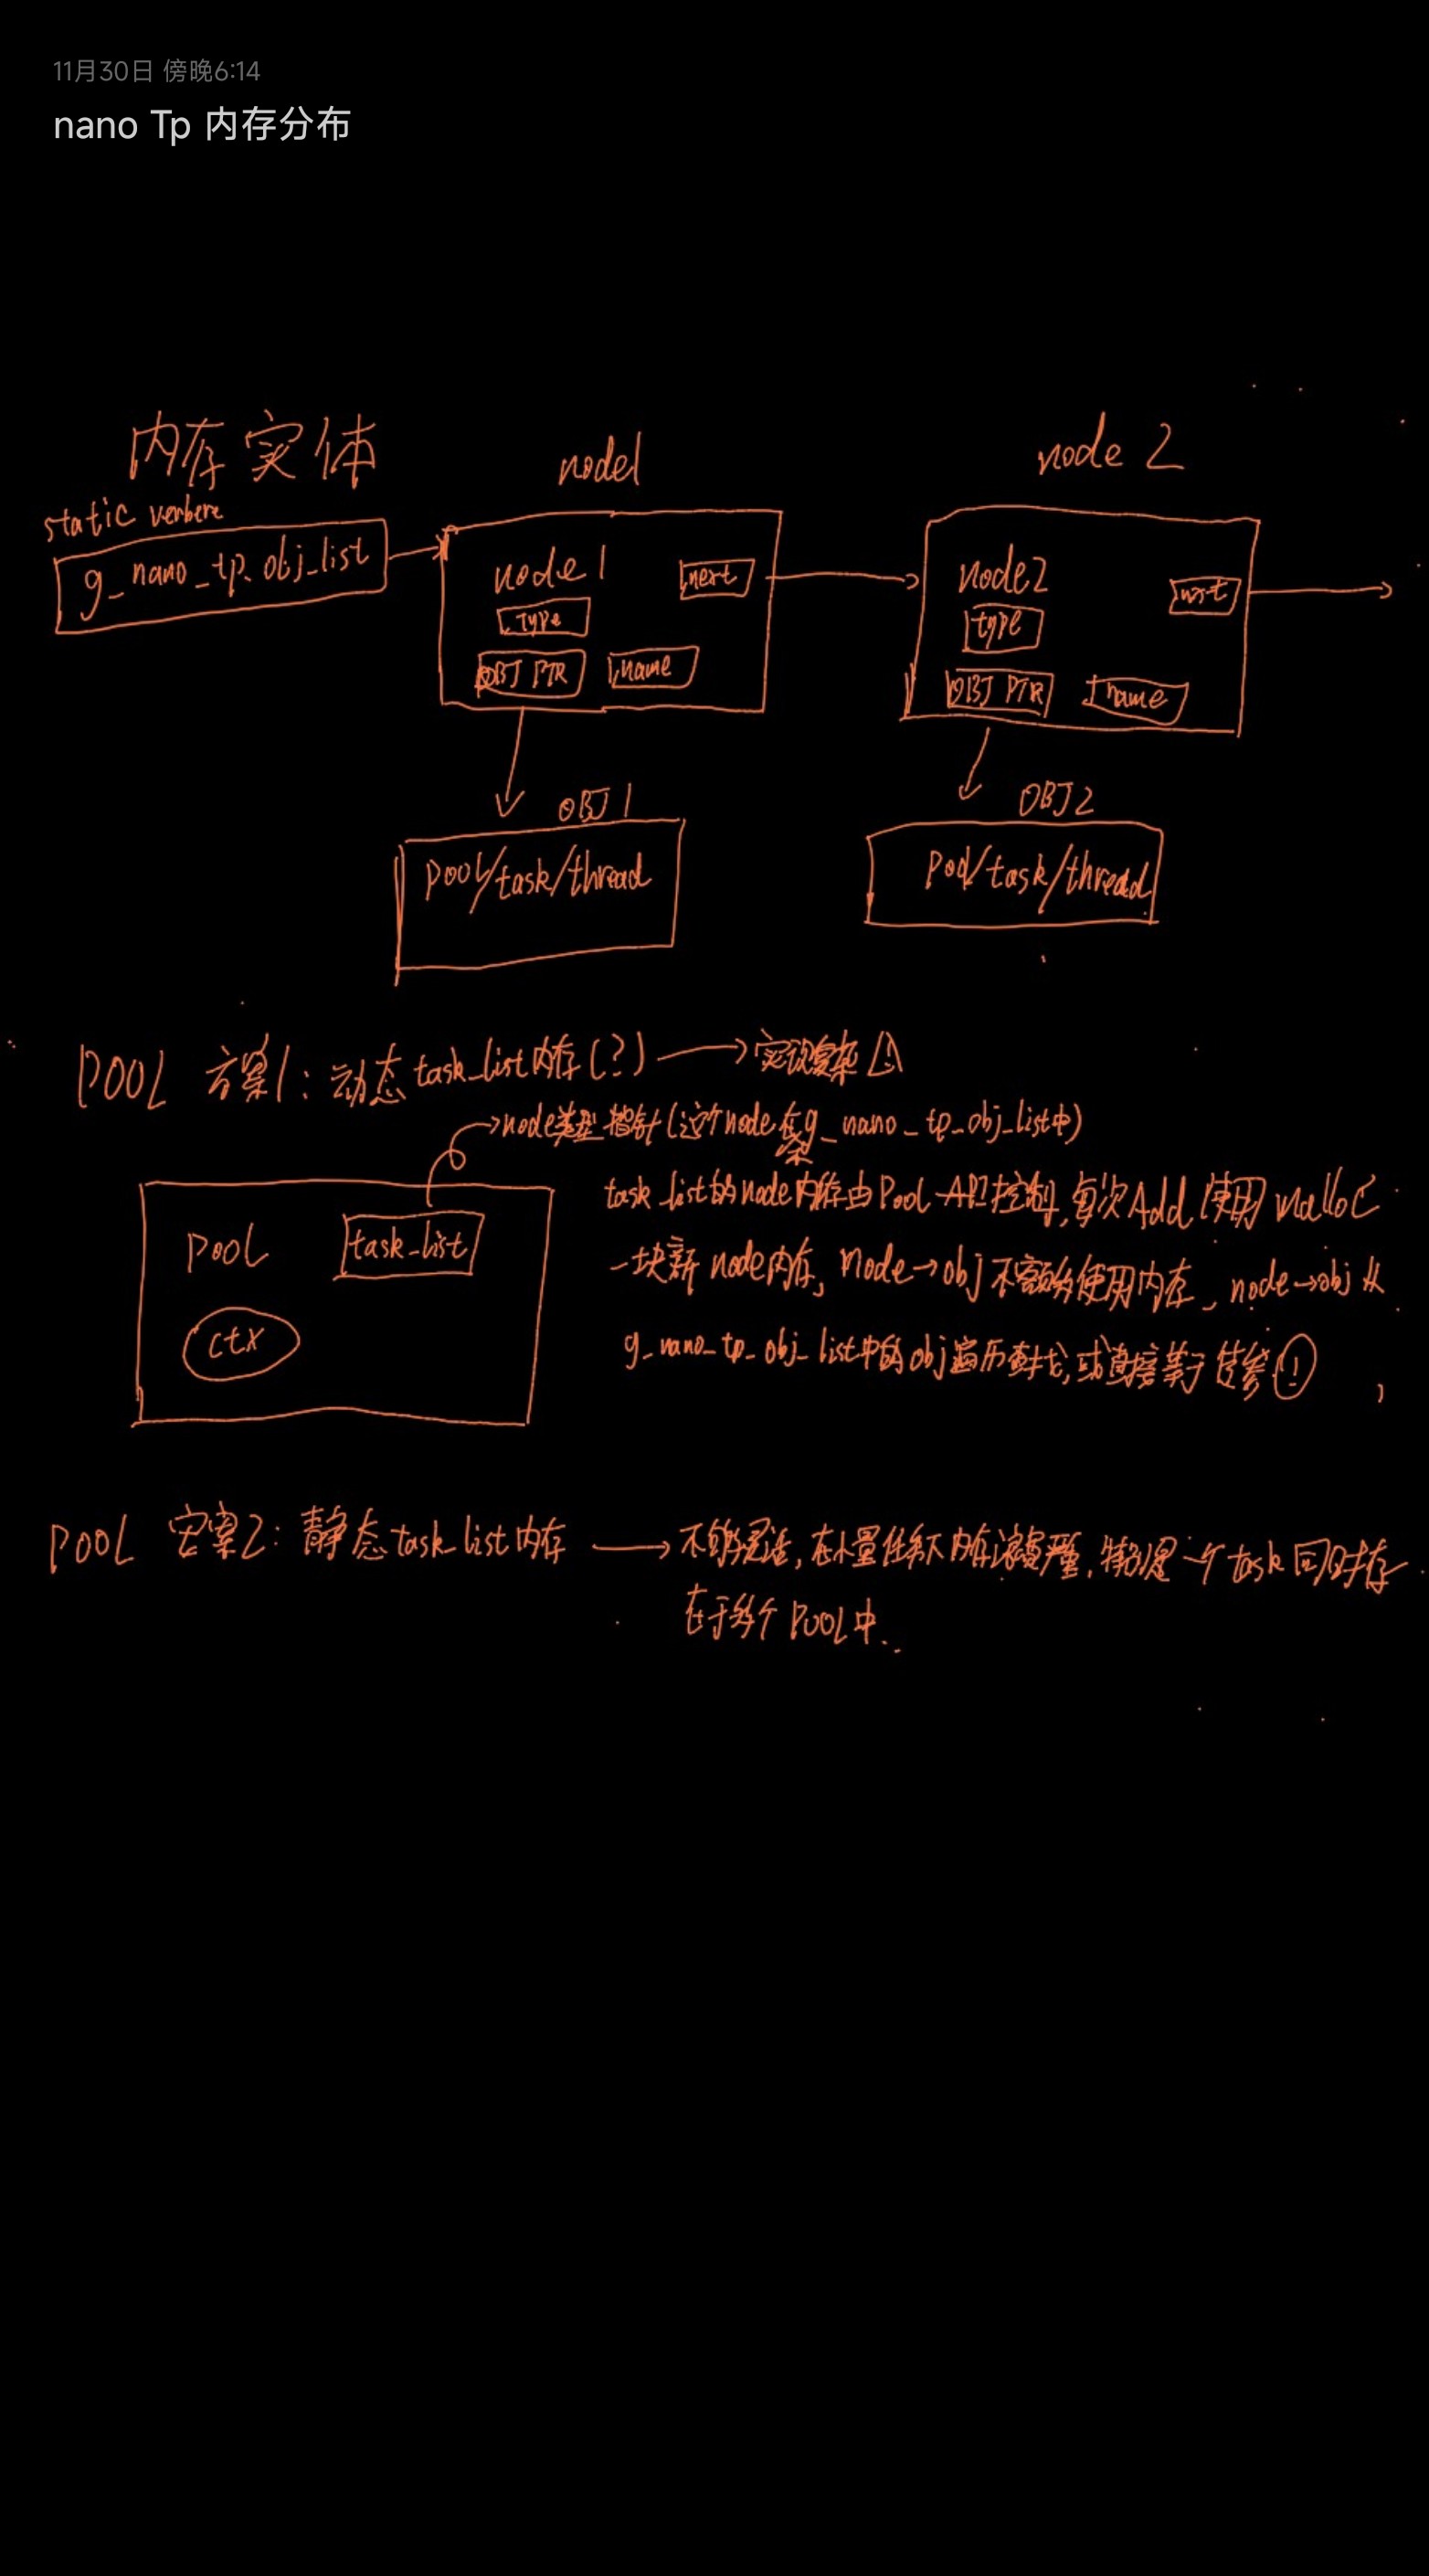 11月30日 傍晚6:14
nano Tp 内存分布
内存实体
node1
node 2
static verbere
g_nano_tp_obj_list
node1
next
type
OBJ PTR
name
node2
next
type
OBJ PTR
name
OBJ 1
Pool/task/thread
OBJ2
Pool/task/thread
POOL 方案1: 动态task_list内存(?) → 实现复杂
node类型指针(这个node在g_nano_tp_obj_list中)
POOL
task_list
ctx
task_list的node内存由Pool API控制,每次Add使用malloc
一块新node内存, node→obj不额外使用内存, node→obj从
g_nano_tp_obj_list中的obj遍历查找,或直接等于传参!
POOL 方案2: 静态task_list内存 → 不够灵活,在小量任务下内存浪费严重,特别是一个task同时存
在于多个POOL中.